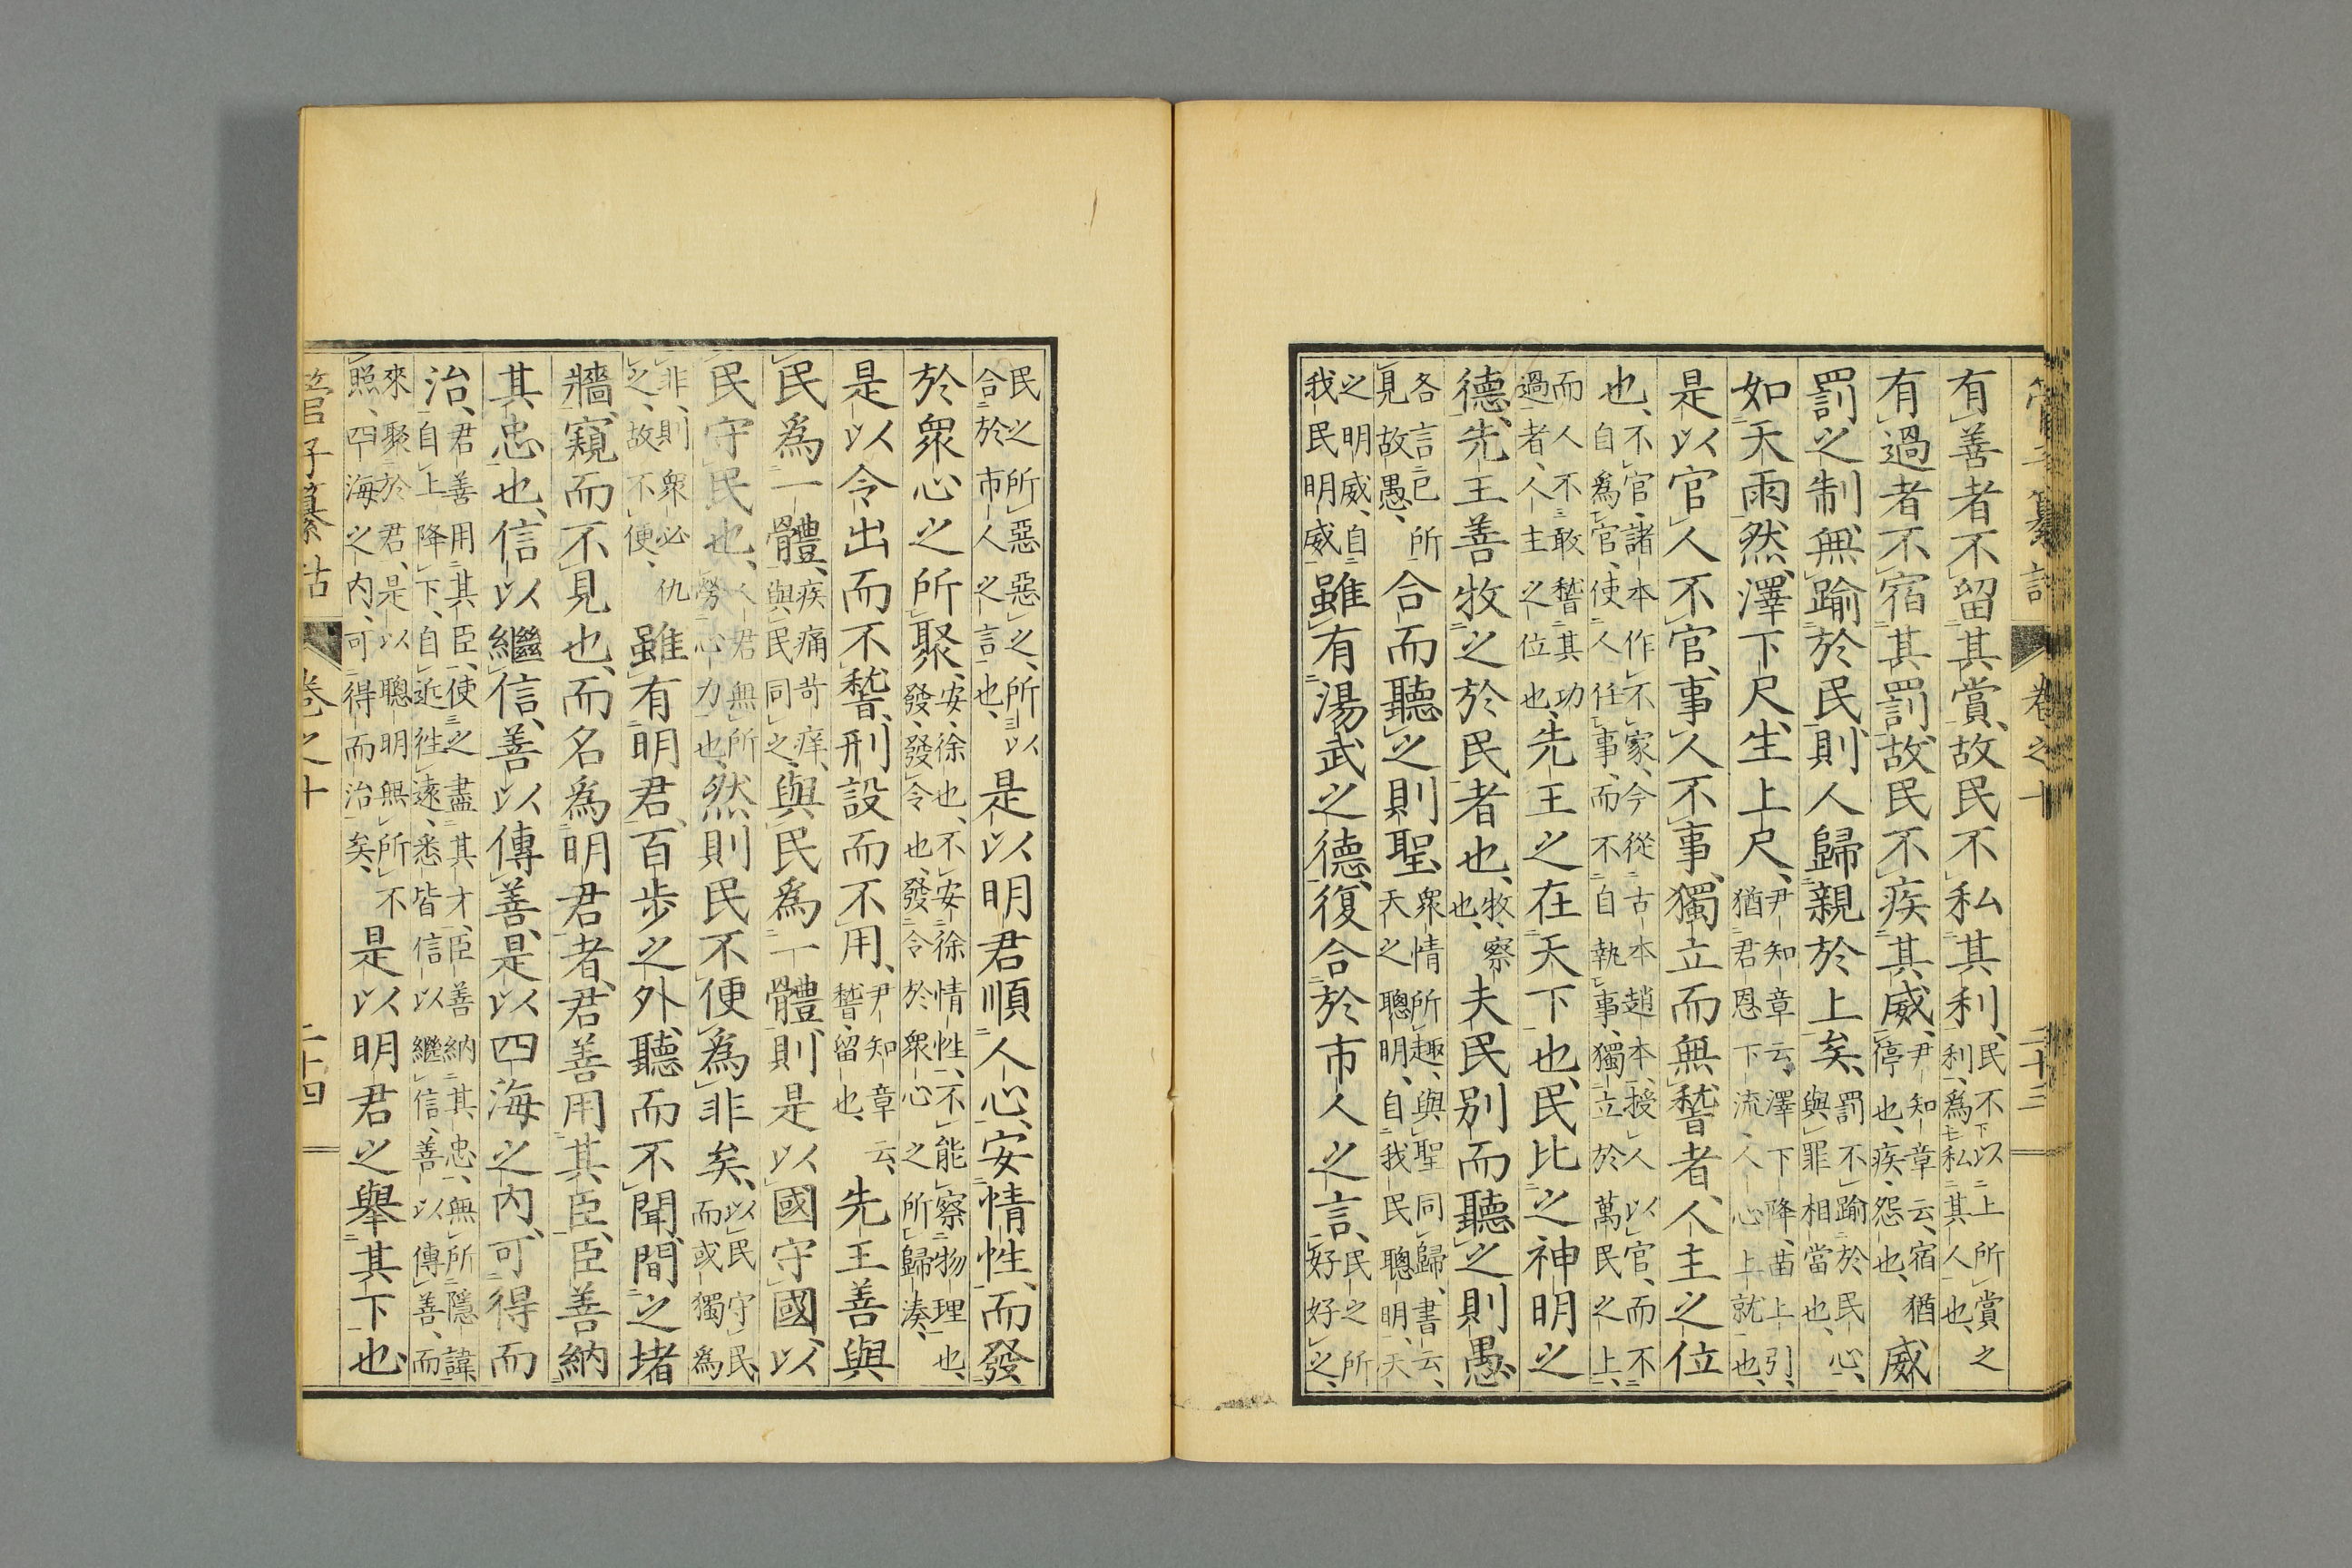 管子纂詁 卷之十 二十三
有善者不留其賞、故民不私其利、民不以上所賞之利、爲私其人也、
有過者不宿其罰、故民不疾其威、尹知章云、宿猶停也、疾怨也、威
罰之制、無踰於民、則人歸親於上矣、罰不踰於民心、與罪相當也、
如天雨然、澤下尺、生上尺、尹知章云、澤下降、苗上引、猶君恩下流、人心上就也、
是以官人不官、事人不事、獨立而無稽者、人主之位
也、不官、諸本作不家、今從古本趙本、授人以官、而不自爲官、使人任事、而不自執事、獨立於萬民之上、
而人不敢稽其功過者、人主之位也、先王之在天下也、民比之神明之
德、先王善牧之於民者也、牧、察也、夫民別而聽之則愚、
各言己所見、故愚、合而聽之則聖、衆情所趣、與聖同歸、書云、天之聰明、自我民聰明、天
之明威、自我民明威、雖有湯武之德、復合於市人之言、民之所好好之、
民之所惡惡之、所以合於市人之言也、是以明君順人心、安情性、而發
於衆心之所聚、安、徐也、不安徐情性、不能察物理也、發、發令也、發令於衆心之所歸湊、
是以令出而不稽、刑設而不用、尹知章云、稽、留也、先王善與
民爲一體、疾痛苛痒、與民同之、與民爲一體、則是以國守國、以
民守民也、人君無所勞心力也、然則民不便爲非矣、以民守民、而或獨爲
非、則衆必仇之、故不便、雖有明君、百步之外、聽而不聞、間之堵
牆、窺而不見也、而名爲明君者、君善用其臣、臣善納
其忠也、信以繼信、善以傳善、是以四海之内、可得而
治、君善用其臣、使之盡其才、臣善納其忠、無所隱諱、自上降下、自近徃遠、悉皆信以繼信、善以傳善、而
來聚於君、是以聰明無所不照、四海之内、可得而治矣、是以明君之舉其下也、
管子纂詁 卷之十 二十四